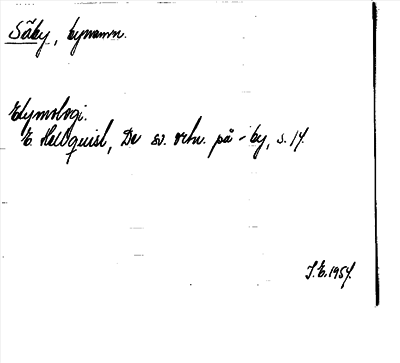 Säby, bynamn.
Etymologi.
E. Hellquist, De sv. ortn. på -by, s. 14.
J.E. 1954.